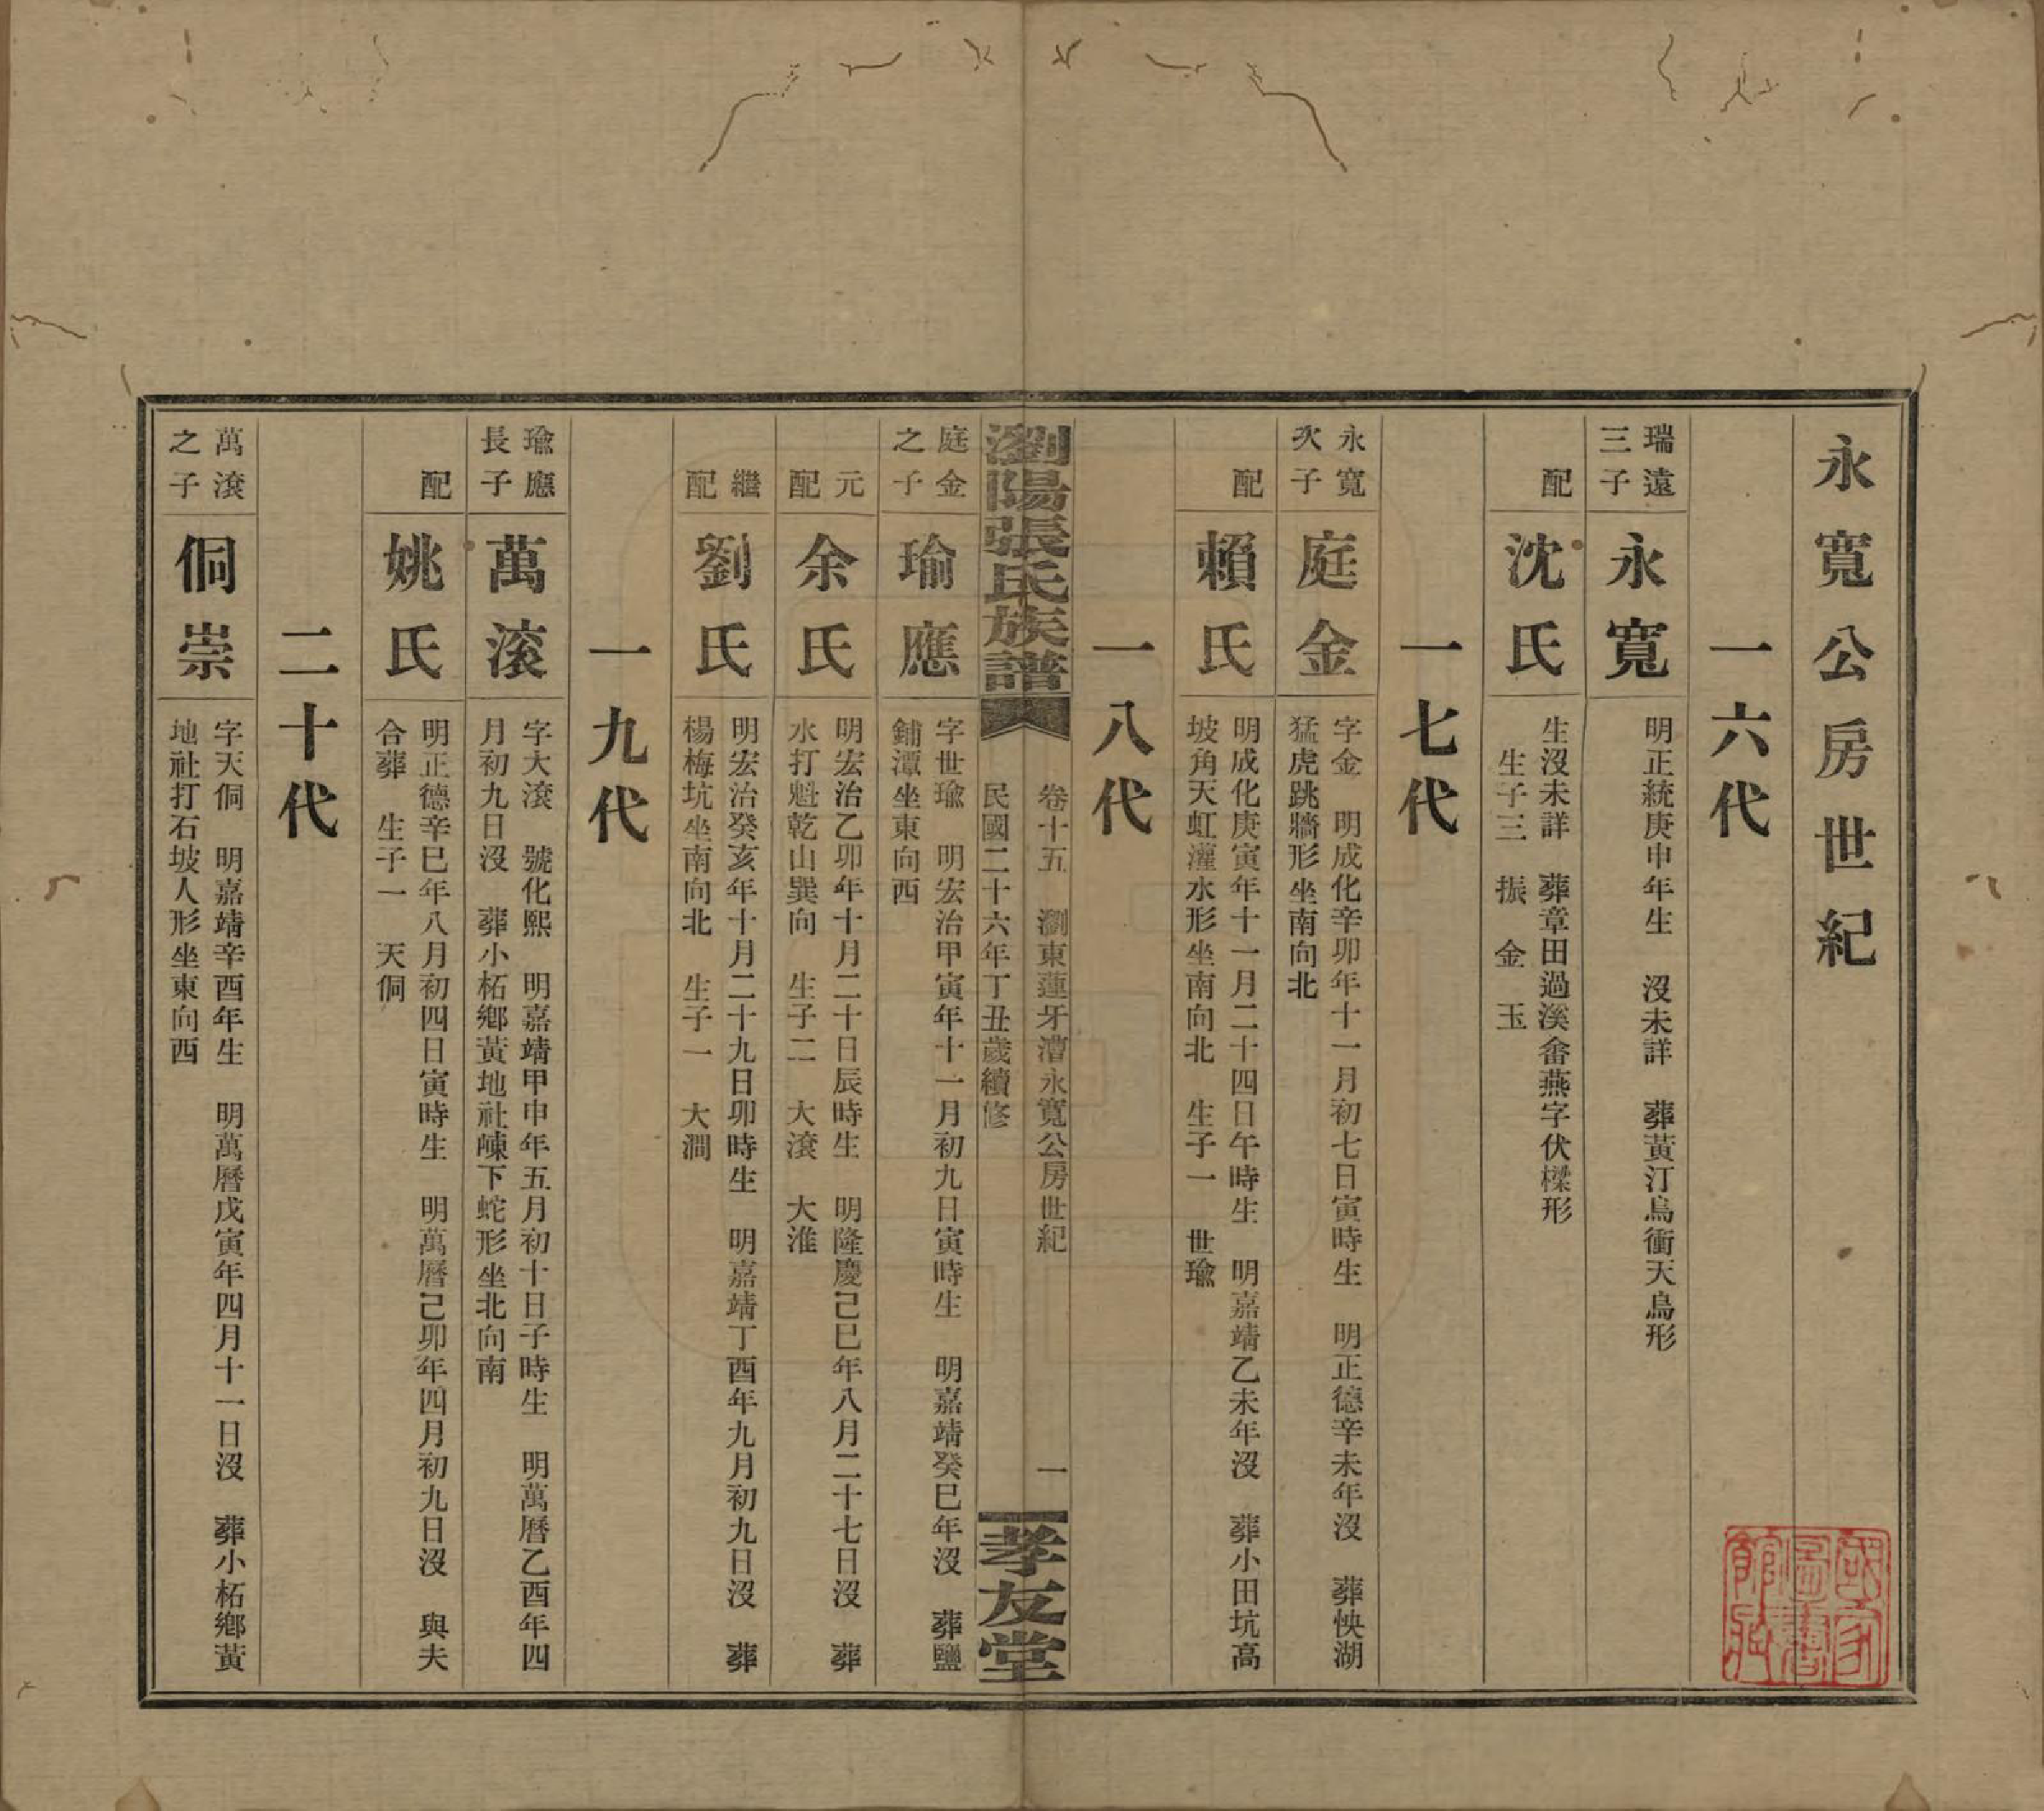 永寬公房世紀
一六代
瑞遠
三子
永寬
明正統庚申年生　沒未詳　葬黃汀烏衝天烏形
配
沈氏
生沒未詳　葬章田過溪畬燕字伏樑形
生子三　振　金　玉
一七代
永寬
次子
庭金
字金　明成化辛卯年十一月初七日寅時生　明正德辛未年沒　葬怏湖
猛虎跳牆形坐南向北
配
賴氏
明成化庚寅年十一月二十四日午時生　明嘉靖乙未年沒　葬小田坑高
坡角天虹灌水形坐南向北　生子一　世瑜
一八代
瀏陽張氏族譜
卷十五　瀏東蓮牙漕永寬公房世紀　一
民國二十六年丁丑歲續修
孝友堂
庭金
之子
瑜應
字世瑜　明宏治甲寅年十一月初九日寅時生　明嘉靖癸巳年沒　葬鹽
鋪潭坐東向西
元
配
余氏
明宏治乙卯年十月二十日辰時生　明隆慶己巳年八月二十七日沒　葬
水打魁乾山巽向　生子二　大滾　大淮
繼
配
劉氏
明宏治癸亥年十月二十九日卯時生　明嘉靖丁酉年九月初九日沒　葬
楊梅坑坐南向北　生子一　大澗
一九代
瑜應
長子
萬滾
字大滾　號化熙　明嘉靖甲申年五月初十日子時生　明萬曆乙酉年四
月初九日沒　葬小柘鄉黃地社崠下蛇形坐北向南
配
姚氏
明正德辛巳年八月初四日寅時生　明萬曆己卯年四月初九日沒　與夫
合葬　生子一　天侗
二十代
萬滾
之子
侗崇
字天侗　明嘉靖辛酉年生　明萬曆戊寅年四月十一日沒　葬小柘鄉黃
地社打石坡人形坐東向西
國家
圖書
館藏